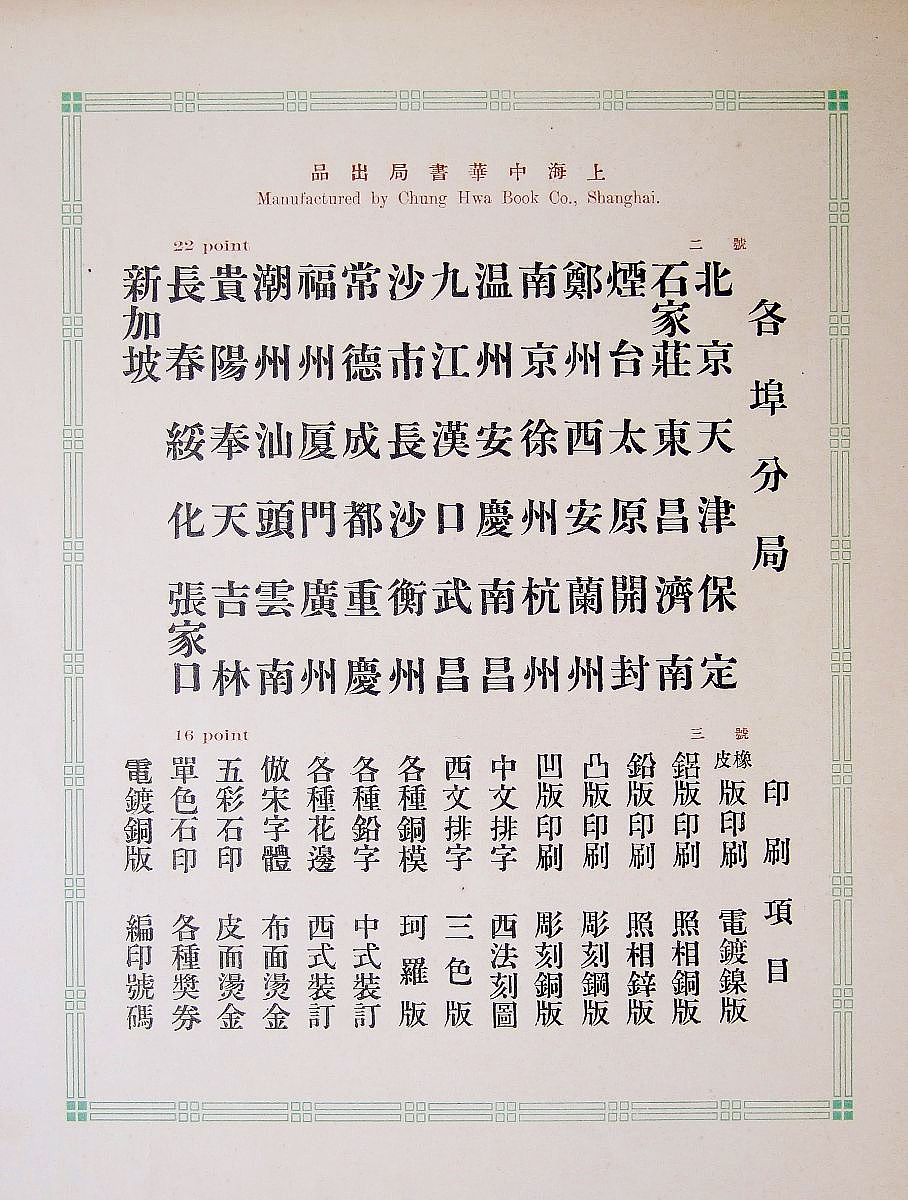 上海中華書局出品
Manufactured by Chung Hwa Book Co., Shanghai.
22 point
二號
各埠分局
北京 天津 保定
石家莊 東昌 濟南
煙台 太原 開封
鄭州 西安 蘭州
南京 徐州 杭州
温州 安慶 南昌
九江 漢口 武昌
沙市 長沙 衡州
常德 成都 重慶
福州 厦門 廣州
潮州 汕頭 雲南
貴陽 奉天 吉林
長春 綏化 張家口
新加坡
16 point
三號
印刷項目
橡皮版印刷 電鍍鎳版
鋁版印刷 照相銅版
鉛版印刷 照相鋅版
凸版印刷 彫刻鋼版
凹版印刷 彫刻銅版
中文排字 西法刻圖
西文排字 三色版
各種銅模 珂羅版
各種鉛字 中式裝訂
各種花邊 西式裝訂
倣宋字體 布面燙金
五彩石印 皮面燙金
單色石印 各種獎券
電鍍銅版 編印號碼